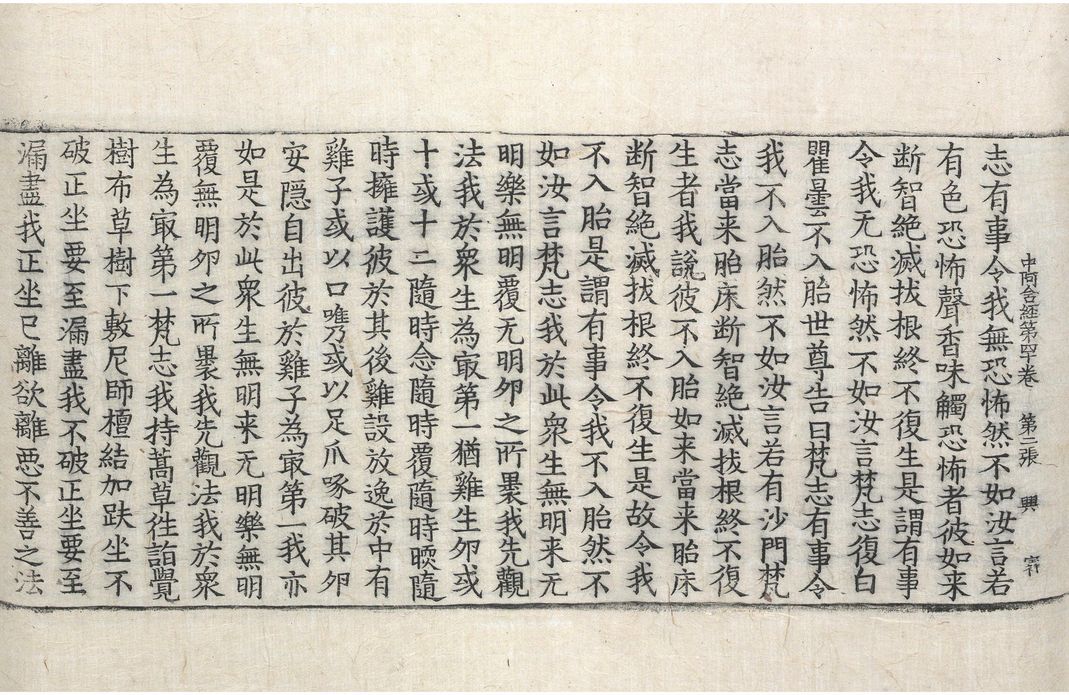 中阿含經第四十卷 第二張 興
志有事令我無恐怖然不如汝言若
有色恐怖聲香味觸恐怖者彼如来
断智絕滅拔根終不復生是謂有事
令我无恐怖然不如汝言梵志復白
瞿曇不入胎世尊告曰梵志有事令
我不入胎然不如汝言若有沙門梵
志當来胎床断智絕滅拔根終不復
生者我說彼不入胎如来當来胎床
断智絕滅拔根終不復生是故令我
不入胎是謂有事令我不入胎然不
如汝言梵志我於此衆生無明来无
明樂無明覆无明夘之所褁我先觀
法我於衆生為㝡第一猶雞生夘或
十或十二隨時念隨時覆隨時暖隨
時擁護彼於其後雞設放逸於中有
雞子或以口唯乃或以足爪啄破其夘
安隠自出彼於雞子為㝡第一我亦
如是於此衆生無明来无明樂無明
覆無明夘之所褁我先觀法我於衆
生為㝡第一梵志我持蒿草徃詣覺
樹布草樹下敷尼師檀結加趺坐不
破正坐要至漏盡我不破正坐要至
漏盡我正坐已離欲離惡不善之法